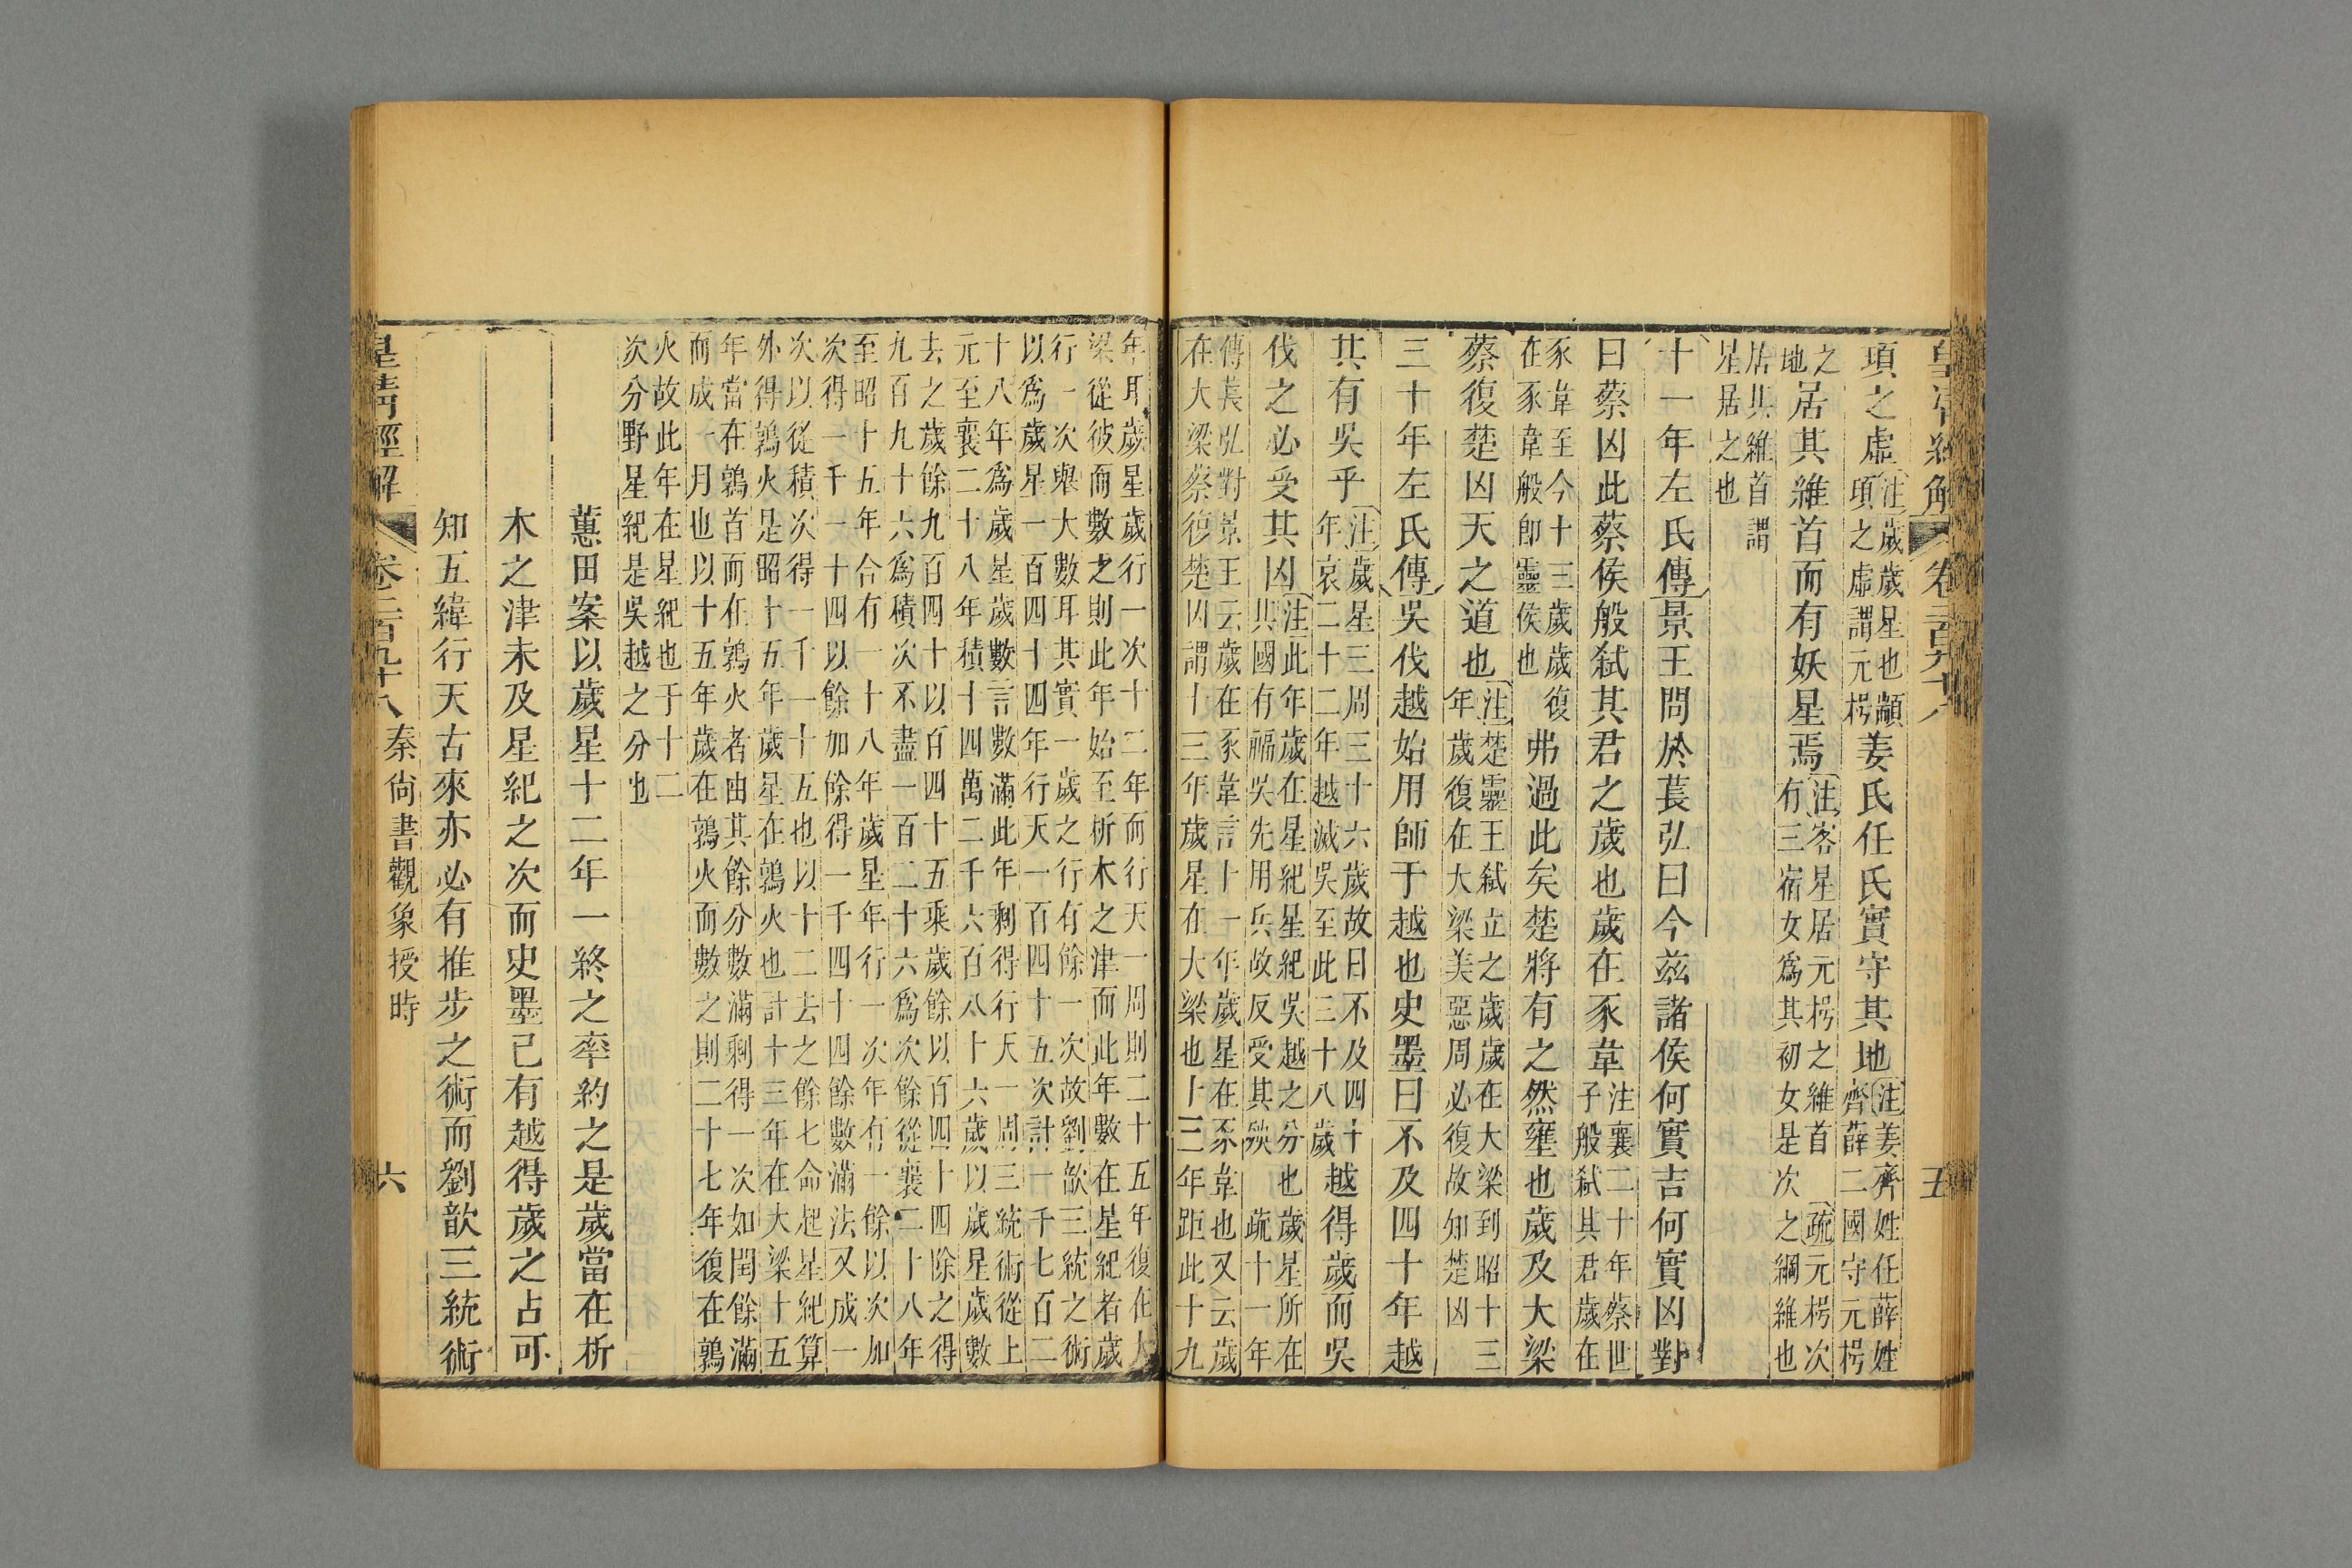 皇清經解 卷二百九十八 五
頊之虛〔注〕歲歲星也顓
頊之虛謂元枵
姜氏任氏實守其地〔注〕姜齊姓任薛姓
齊薛二國守元枵
之
地
居其維首而有妖星焉〔注〕客星居元枵之維首〔疏〕元枵次
有三宿女爲其初女是次之綱維也
居其維首謂
星居之也
十一年左氏傳景王問於萇弘曰今兹諸侯何實吉何實凶對
曰蔡凶此蔡侯般弑其君之歲也歲在豕韋注襄二十年蔡世
子般弑其君歲在
豕韋至今十三歲歲復
在豕韋般卽靈侯也
弗過此矣楚將有之然壅也歲及大梁
蔡復楚凶天之道也〔注〕楚靈王弑立之歲歲在大梁到昭十三
年歲復在大梁美惡周必復故知楚凶
三十年左氏傳吳伐越始用師于越也史墨曰不及四十年越
其有吳乎〔注〕歲星三周三十六歲故曰不及四十
年哀二十二年越滅吳至此三十八歲
越得歲而吳
伐之必受其凶〔注〕此年歲在星紀星紀吳越之分也歲星所在
其國有福吳先用兵故反受其殃 疏十一年
傳萇弘對景王云歲在豕韋言十一年歲星在豕韋也又云歲
在大梁蔡復楚凶謂十三年歲星在大梁也十三年距此十九
年耳歲星歲行一次十二年而行天一周則二十五年復在大
梁從彼而數之則此年始至析木之津而此年數在星紀者歲
行一次舉大數耳其實一歲之行有餘一次故劉歆三統之術
以爲歲星一百四十四年行天一百四十五次計一千七百二
十八年爲歲星歲數言數滿此年剩得行天一周三統術從上
元至襄二十八年積十四萬二千六百八十六歲以歲星歲數
去之歲餘九百四十以百四十五乘歲餘以百四十四除之得
九百九十六爲積次不盡一百二十六爲次餘從襄二十八年
至昭十五年合有一十八年歲星年行一次年有一餘以次加
次得一千一十四以餘加餘得一千四十四餘數滿法又成一
次以從積次得一千一十五也以十二去之餘七命起星紀算
外得鶉火是昭十五年歲星在鶉火也計十三年在大梁十五
年當在鶉首而在鶉火者由其餘分數滿剩得一次如閏餘滿
而成一月也以十五年歲在鶉火而數之則二十七年復在鶉
火故此年在星紀也于十二
次分野星紀是吳越之分也
蕙田案以歲星十二年一終之率約之是歲當在析
木之津未及星紀之次而史墨已有越得歲之占可
知五緯行天古來亦必有推步之術而劉歆三統術
皇清經解 卷二百九十八 秦尚書觀象授時 六